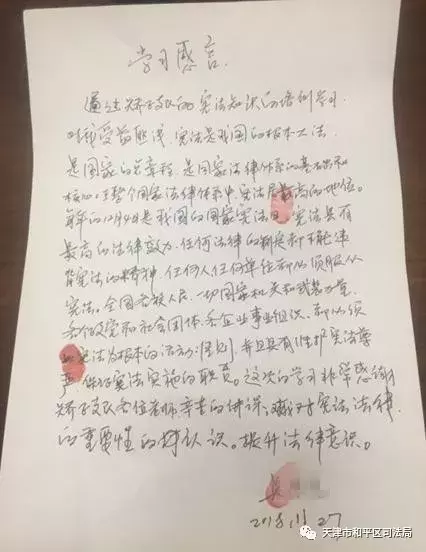 学习感言
通过矫正支队的宪法知识的培训学习
对我受益匪浅，宪法是我国的根本大法
是国家的总章程，是国家法律体系的基础和
核心，在整个国家法律体系中，宪法居最高的地位。
每年的12月4日是我国的国家宪法日，宪法具有
最高的法律效力，任何法律的制定都不能违
背宪法的精神，任何人任何单位都必须服从
宪法。全国各族人民，一切国家机关和武装力量，
各个政党和社会团体，各企业事业组织，都必须
以宪法为根本的活动准则，并且具有维护宪法尊
严，保证宪法实施的职责。这次的学习非常感谢
矫正支队各位老师辛苦的讲课，对宪法法律
的重要性的认识。提升法律意识。
2018.11.27
天津市和平区司法局